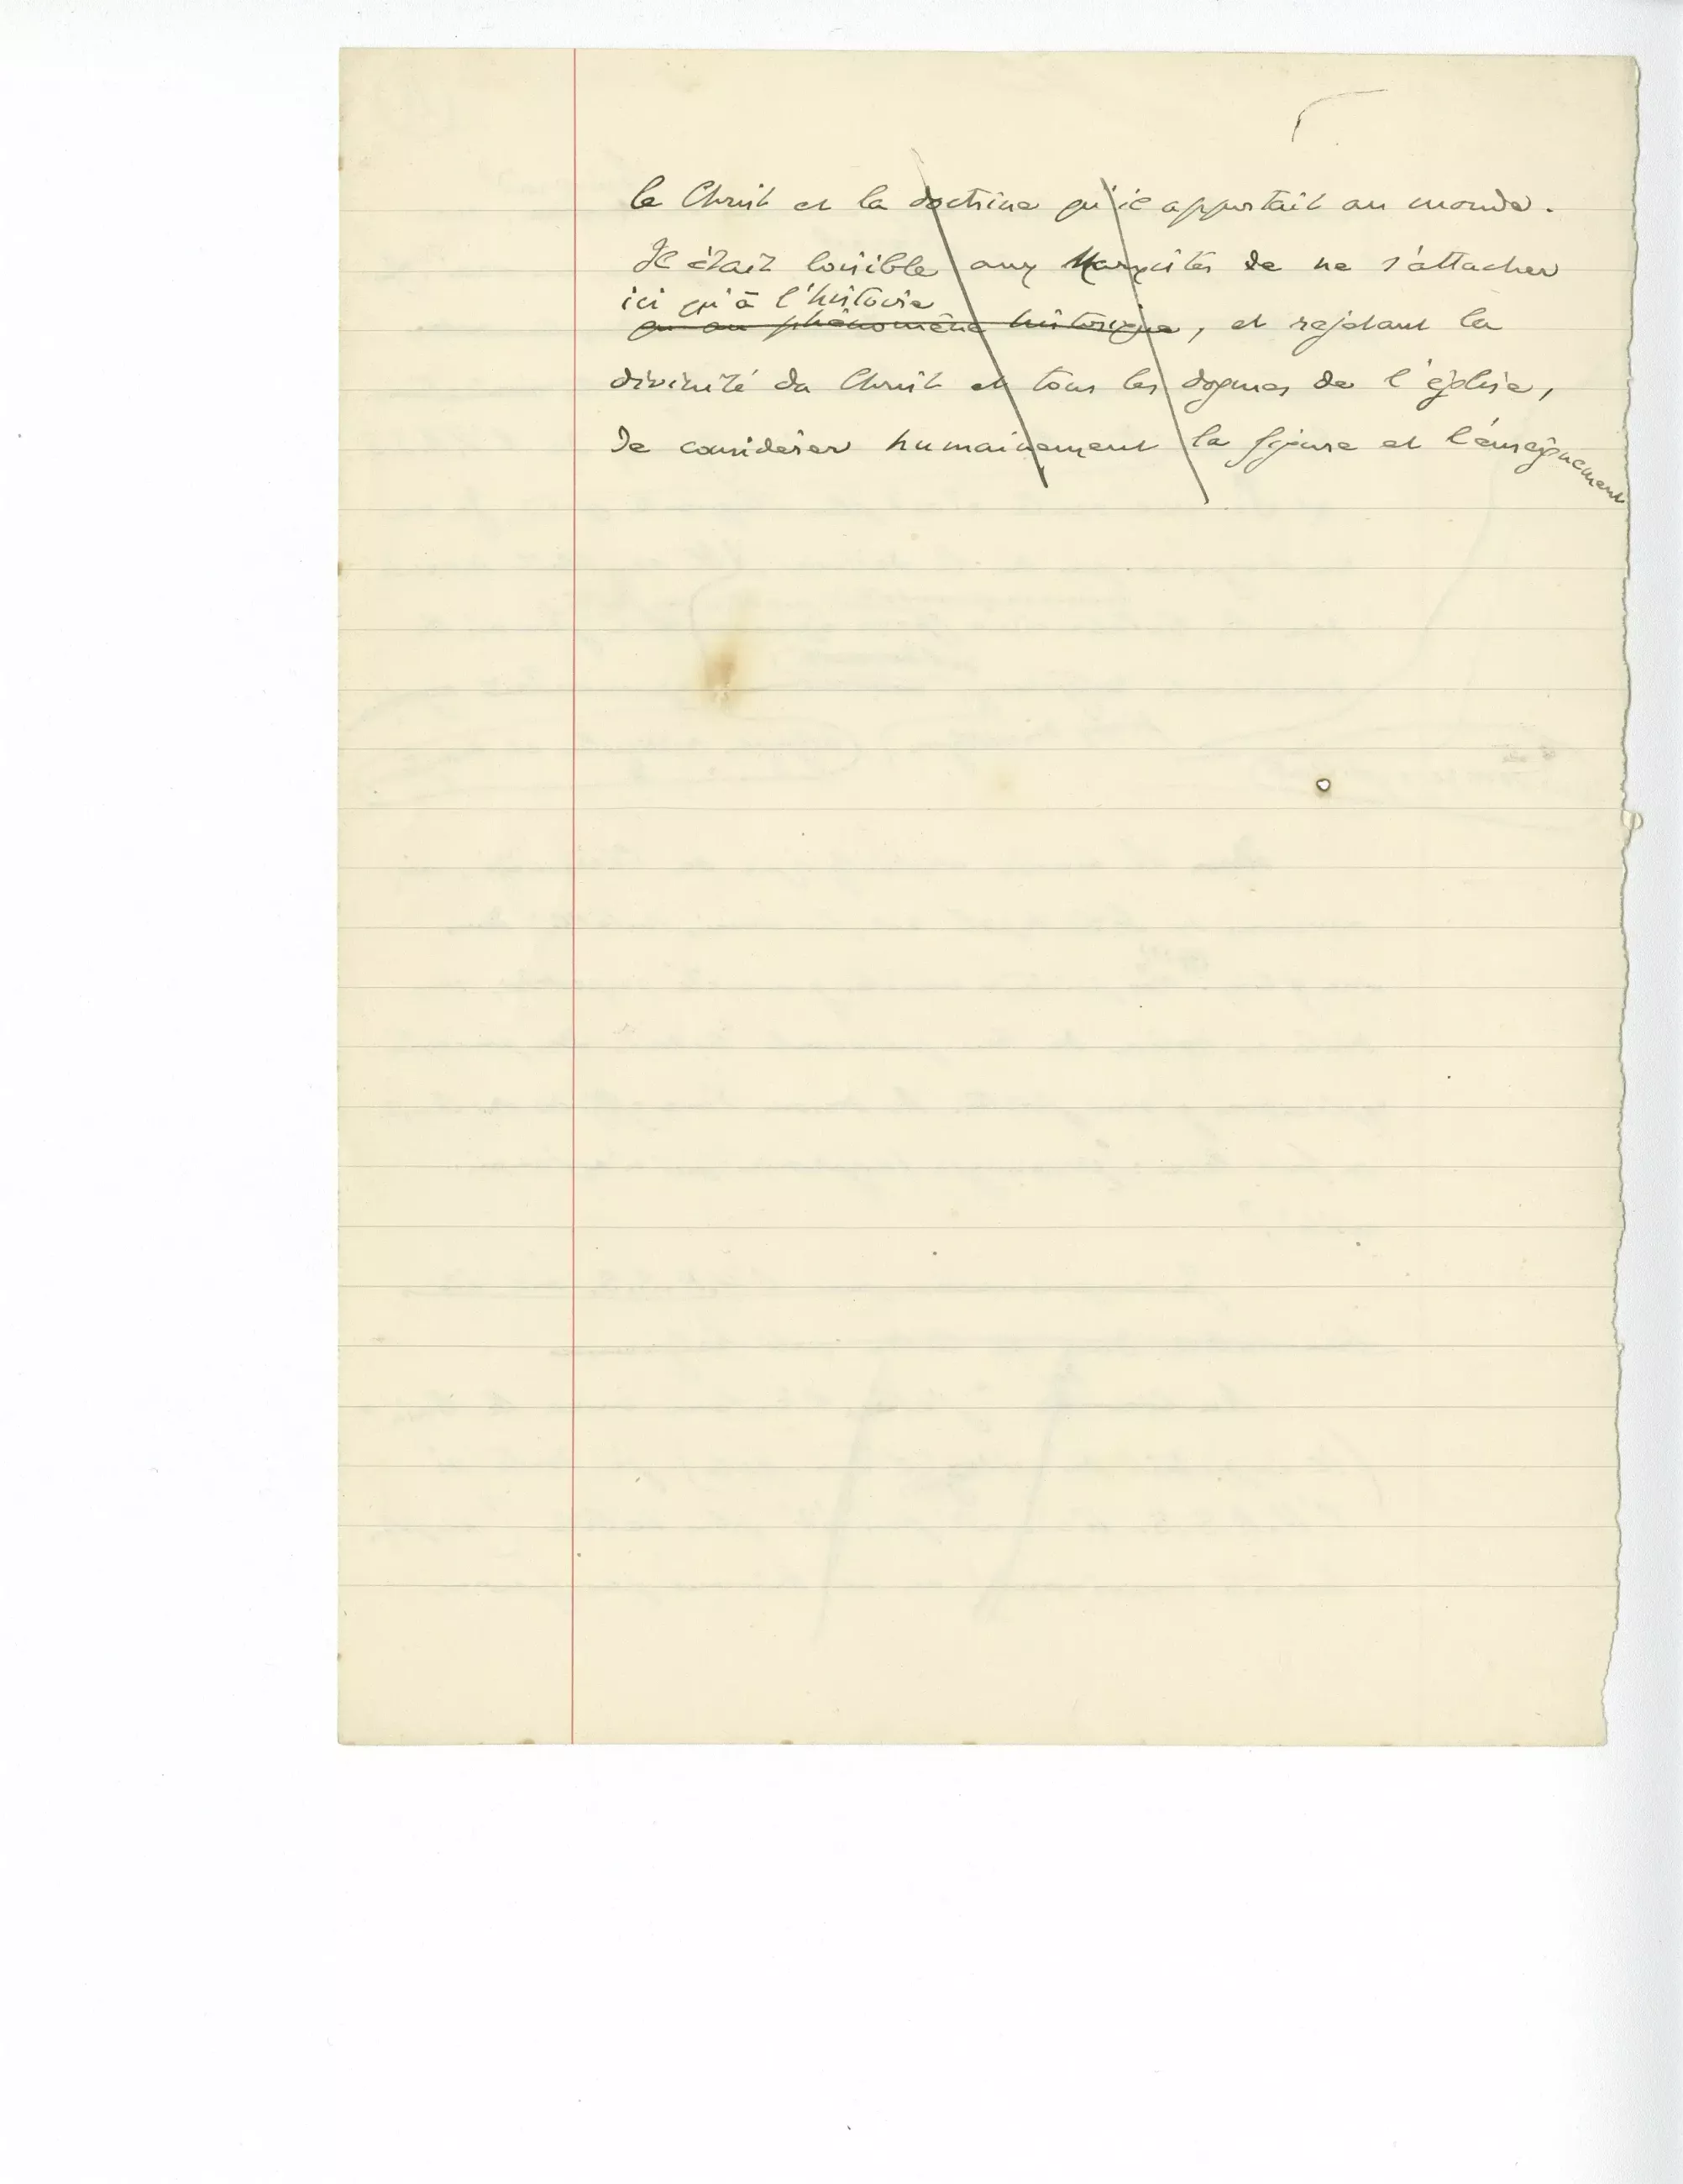 le Christ et la doctrine qu'il apportait au monde.
Il était loisible aux Marxistes de ne s'attacher
ici qu'à l'histoire
qu'au phénomène historique, et rejetant la
divinité du Christ et tous les dogmes de l'église,
de considérer humainement la figure et l'enseignement